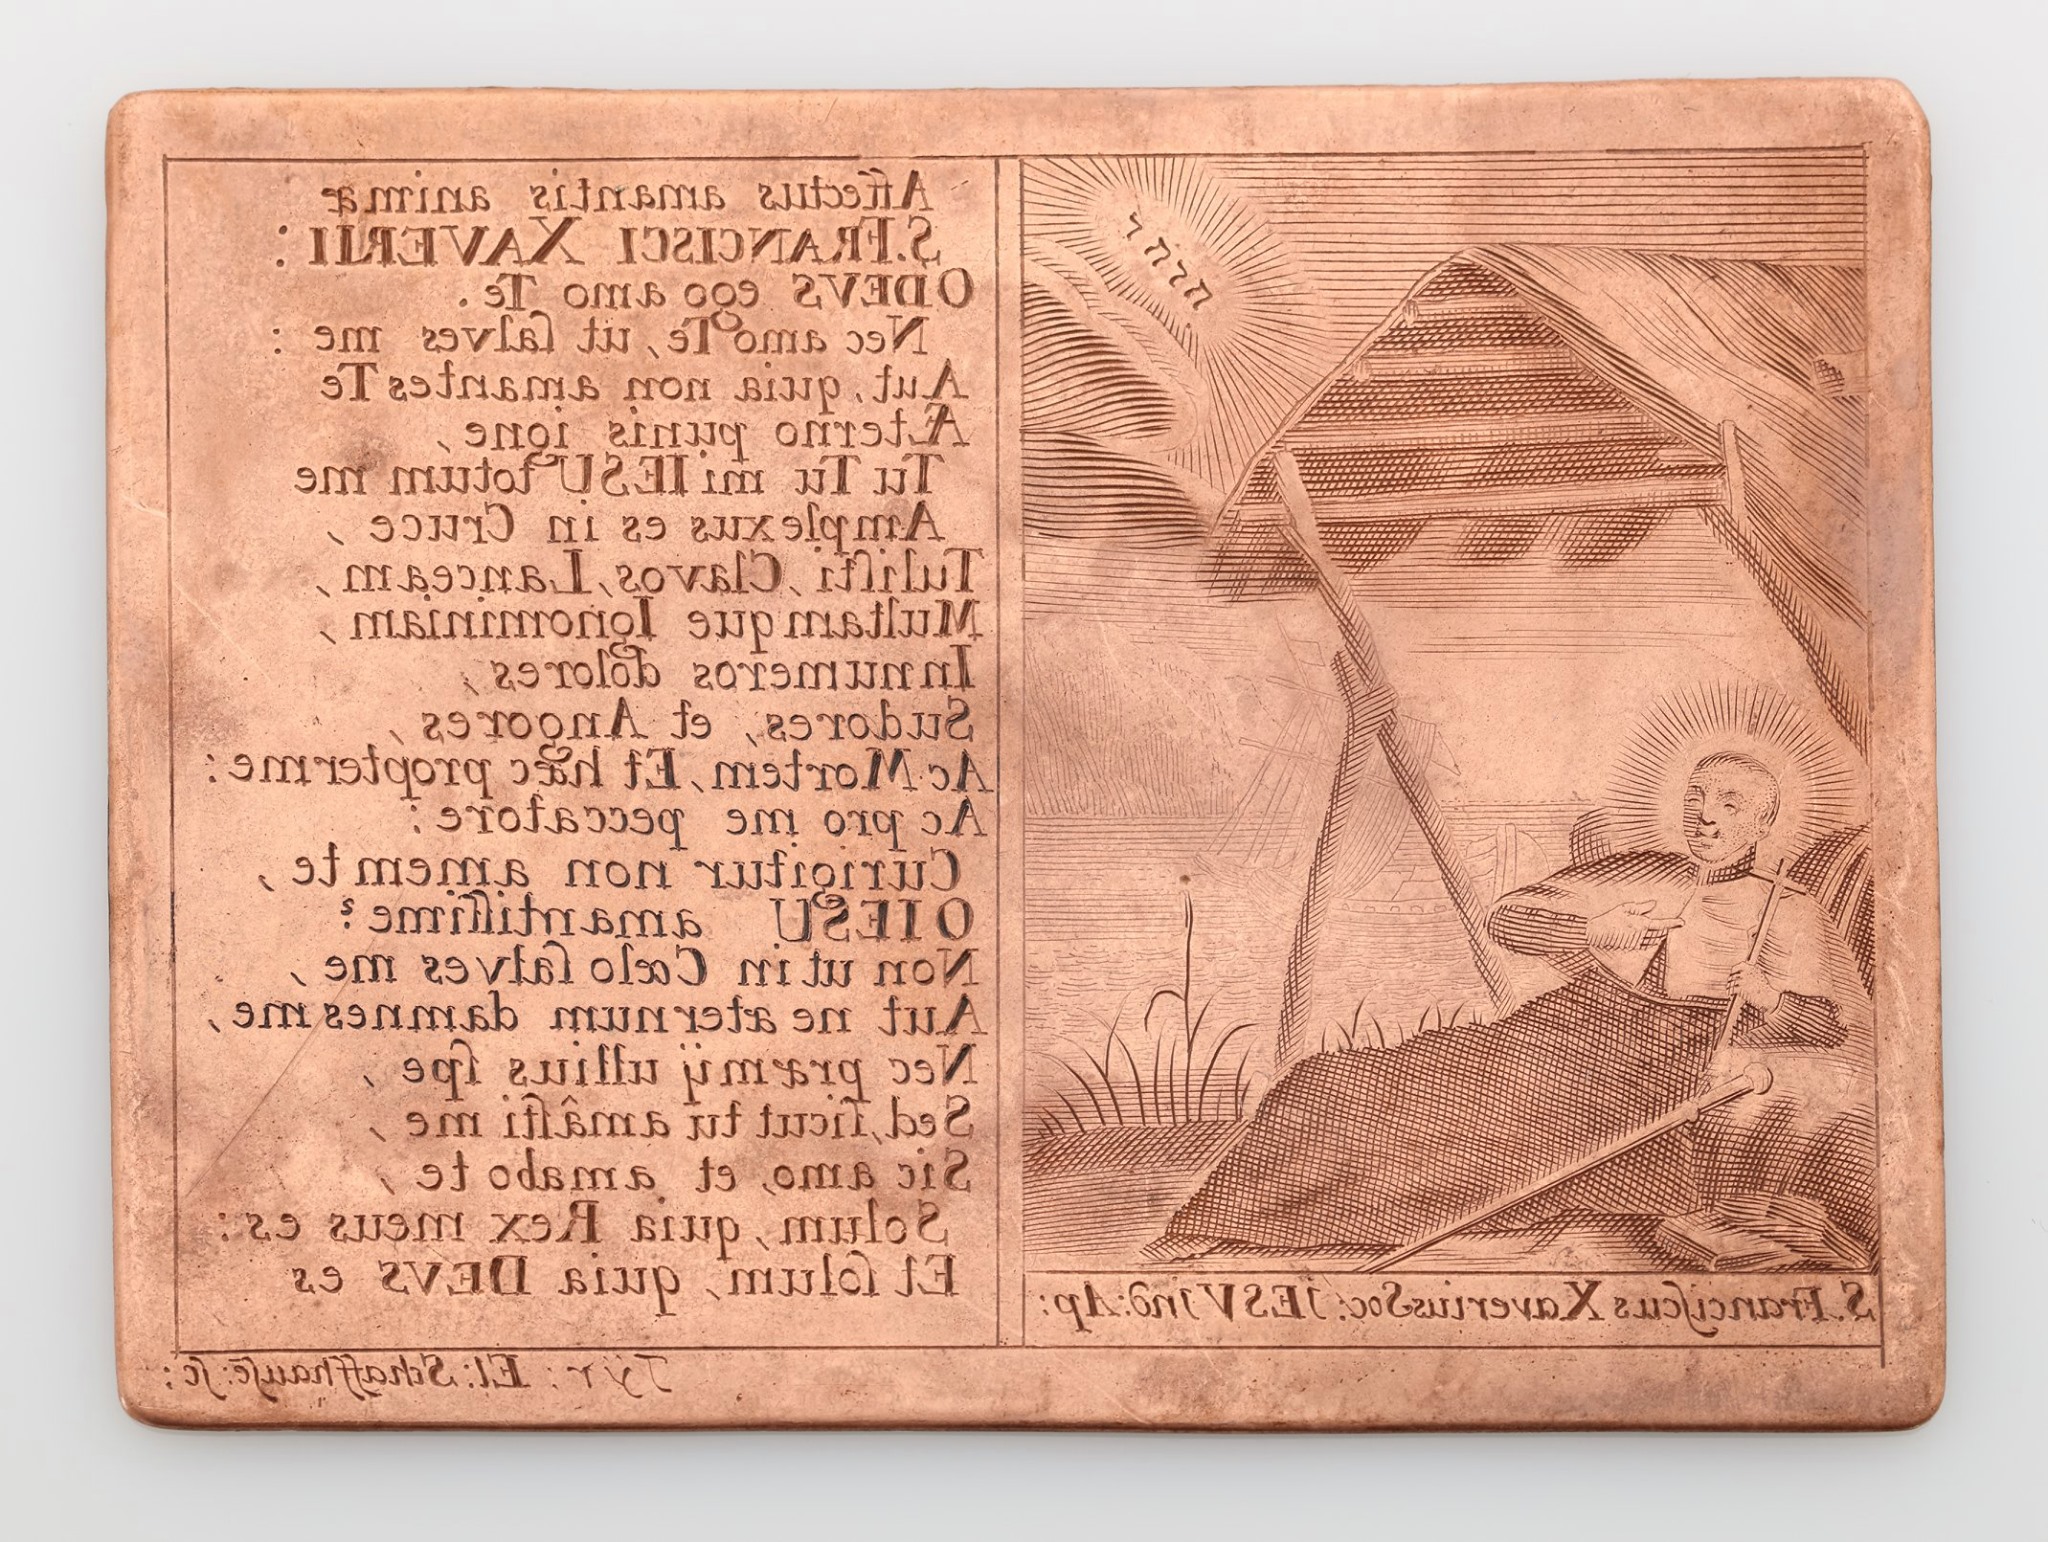 Affectus amantis animæ
S. FRANCISCI XAVERII:
O DEVS ego amo Te.
Nec amo Te, ut ſalves me:
Aut, quia non amantes Te
Æterno punis igne,
Tu Tu mi IESU totum me
Amplexus es in Cruce,
Tuliſti, Clavos, Lanceam,
Multamque Ignominiam,
Innumeros dolores,
Sudores, et Angores,
Ac Mortem, Et hæc propter me:
Ac pro me peccatore:
Cur igitur non amem te,
O IESU amantiſſime?
Non ut in Cœlo ſalves me,
Aut ne æternum damnes me,
Nec præmij ullius ſpe,
Sed, ſicut tu amâſti me,
Sic amo, et amabo te,
Solum, quia Rex meus es:
Et ſolum, quia DEVS es
יהוה
S. Franciſcus Xaverius Soc: JESV Jnd: Ap:
Tÿr: El: Schaffhauſe: ſc: